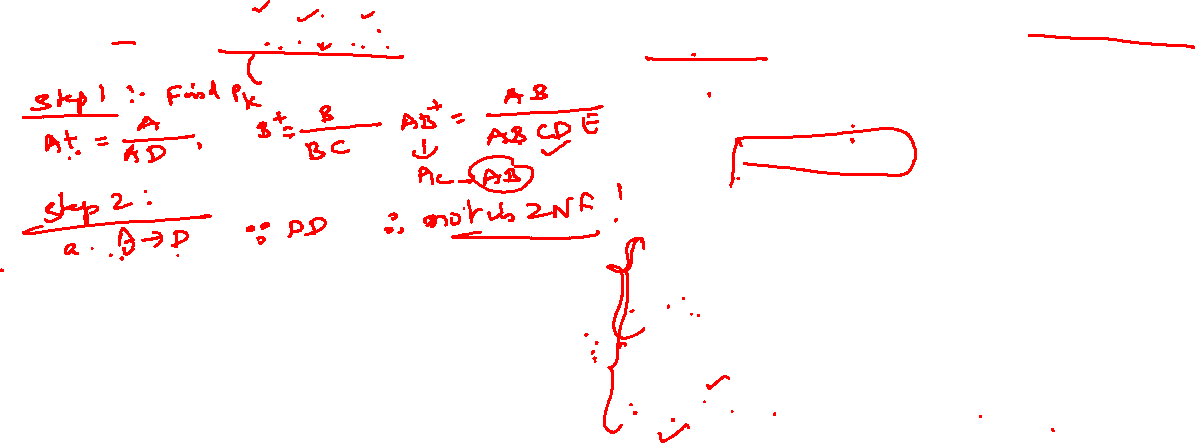 Step 1 :- Find PK
A+ = A/AD, B+ = B/BC AB+ = AB/ABCDE
PK → AB
Step 2 :
a. A→D ∵ PD ∴ not in 2NF!